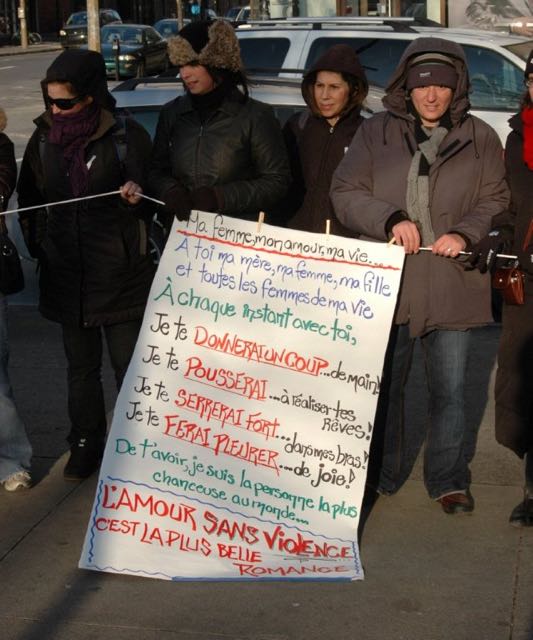 Ma femme, mon amour, ma vie...
À toi ma mère, ma femme, ma fille
et toutes les femmes de ma vie
À chaque instant avec toi,
Je te DONNERAI UN COUP...de main!
Je te POUSSERAI...à réaliser tes
rêves!
Je te SERRERAI FORT...dans mes bras!
Je te FERAI PLEURER...de joie!
De t'avoir, je suis la personne la plus
chanceuse au monde...
L'AMOUR SANS VIOLENCE...
C'EST LA PLUS BELLE
ROMANCE...